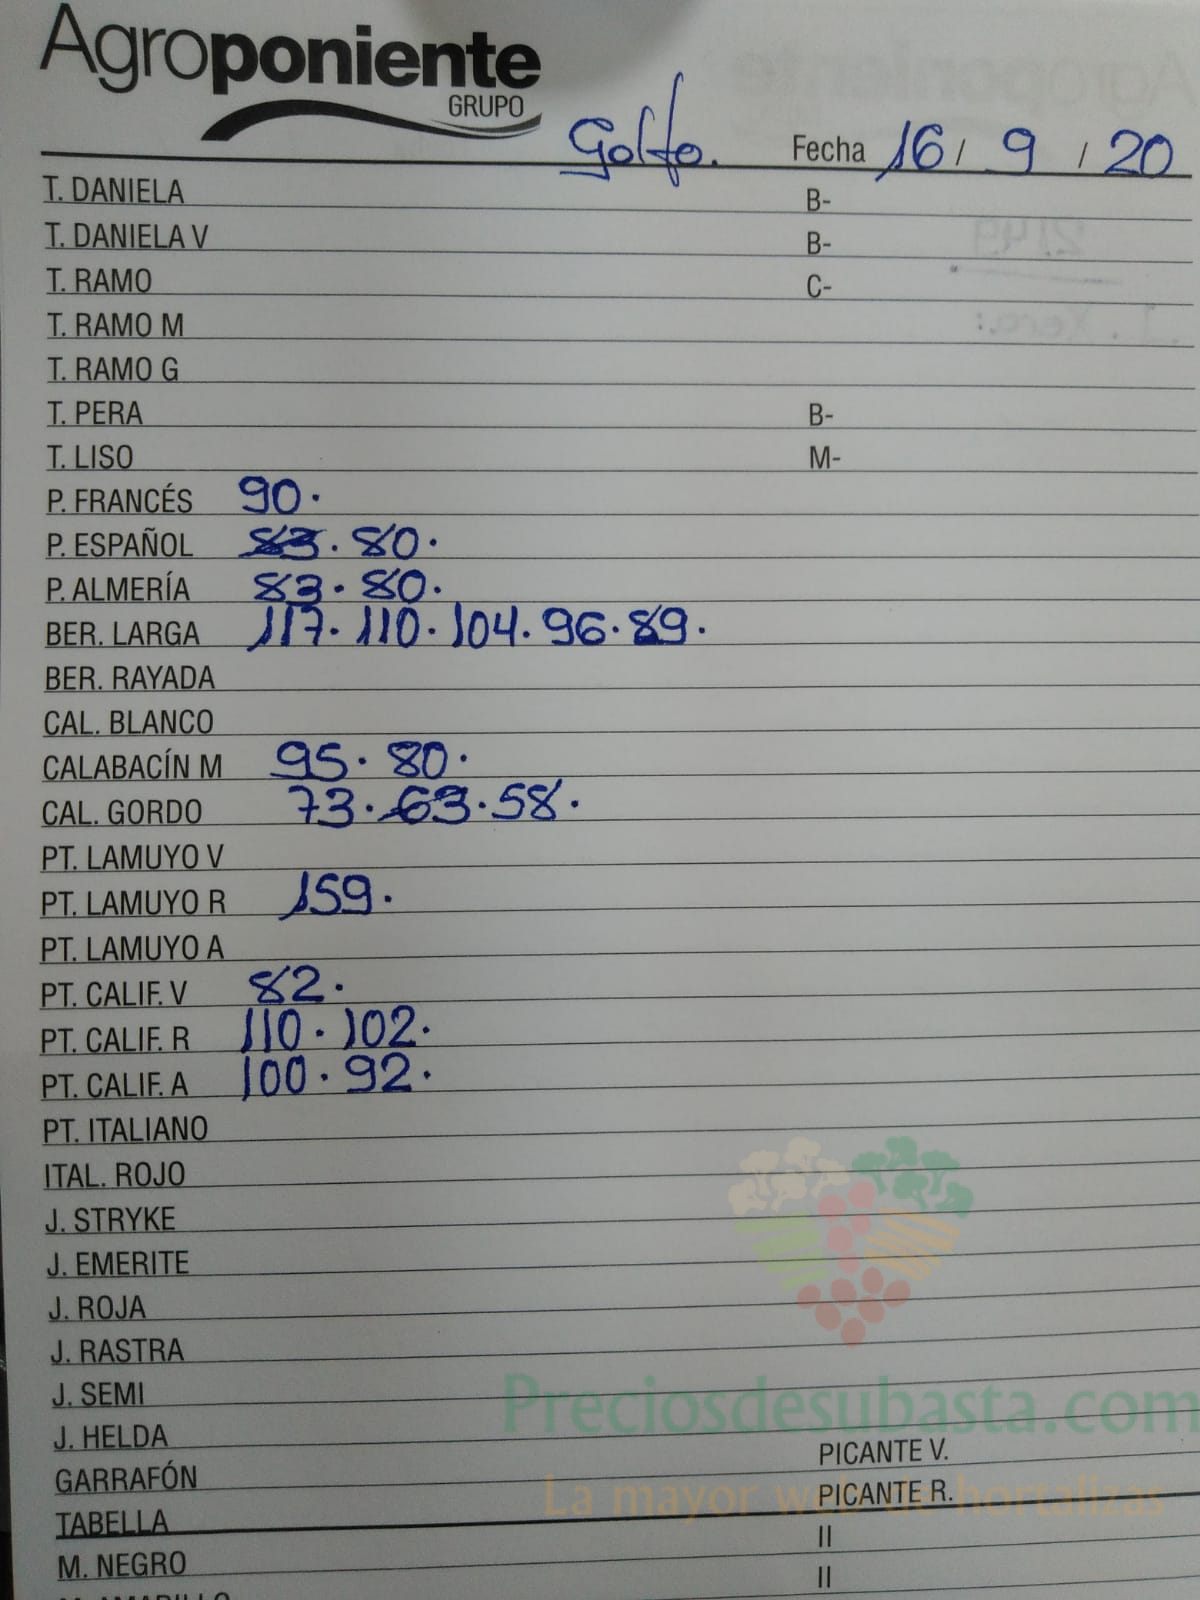 Agroponiente
GRUPO
Golfo. Fecha 16 / 9 / 20
T. DANIELA B-
T. DANIELA V B-
T. RAMO C-
T. RAMO M
T. RAMO G
T. PERA B-
T. LISO M-
P. FRANCÉS 90.
P. ESPAÑOL 83. 80.
P. ALMERÍA 83. 80.
BER. LARGA 117. 110. 104. 96. 89.
BER. RAYADA
CAL. BLANCO
CALABACÍN M 95. 80.
CAL. GORDO 73. 63. 58.
PT. LAMUYO V
PT. LAMUYO R 159.
PT. LAMUYO A
PT. CALIF. V 82.
PT. CALIF. R 110. 102.
PT. CALIF. A 100. 92.
PT. ITALIANO
ITAL. ROJO
J. STRYKE
J. EMERITE
J. ROJA
J. RASTRA
J. SEMI
Preciosdesubasta.com
J. HELDA
PICANTE V.
GARRAFÓN
La mayor web de hortalizas
PICANTE R.
TABELLA II
M. NEGRO II